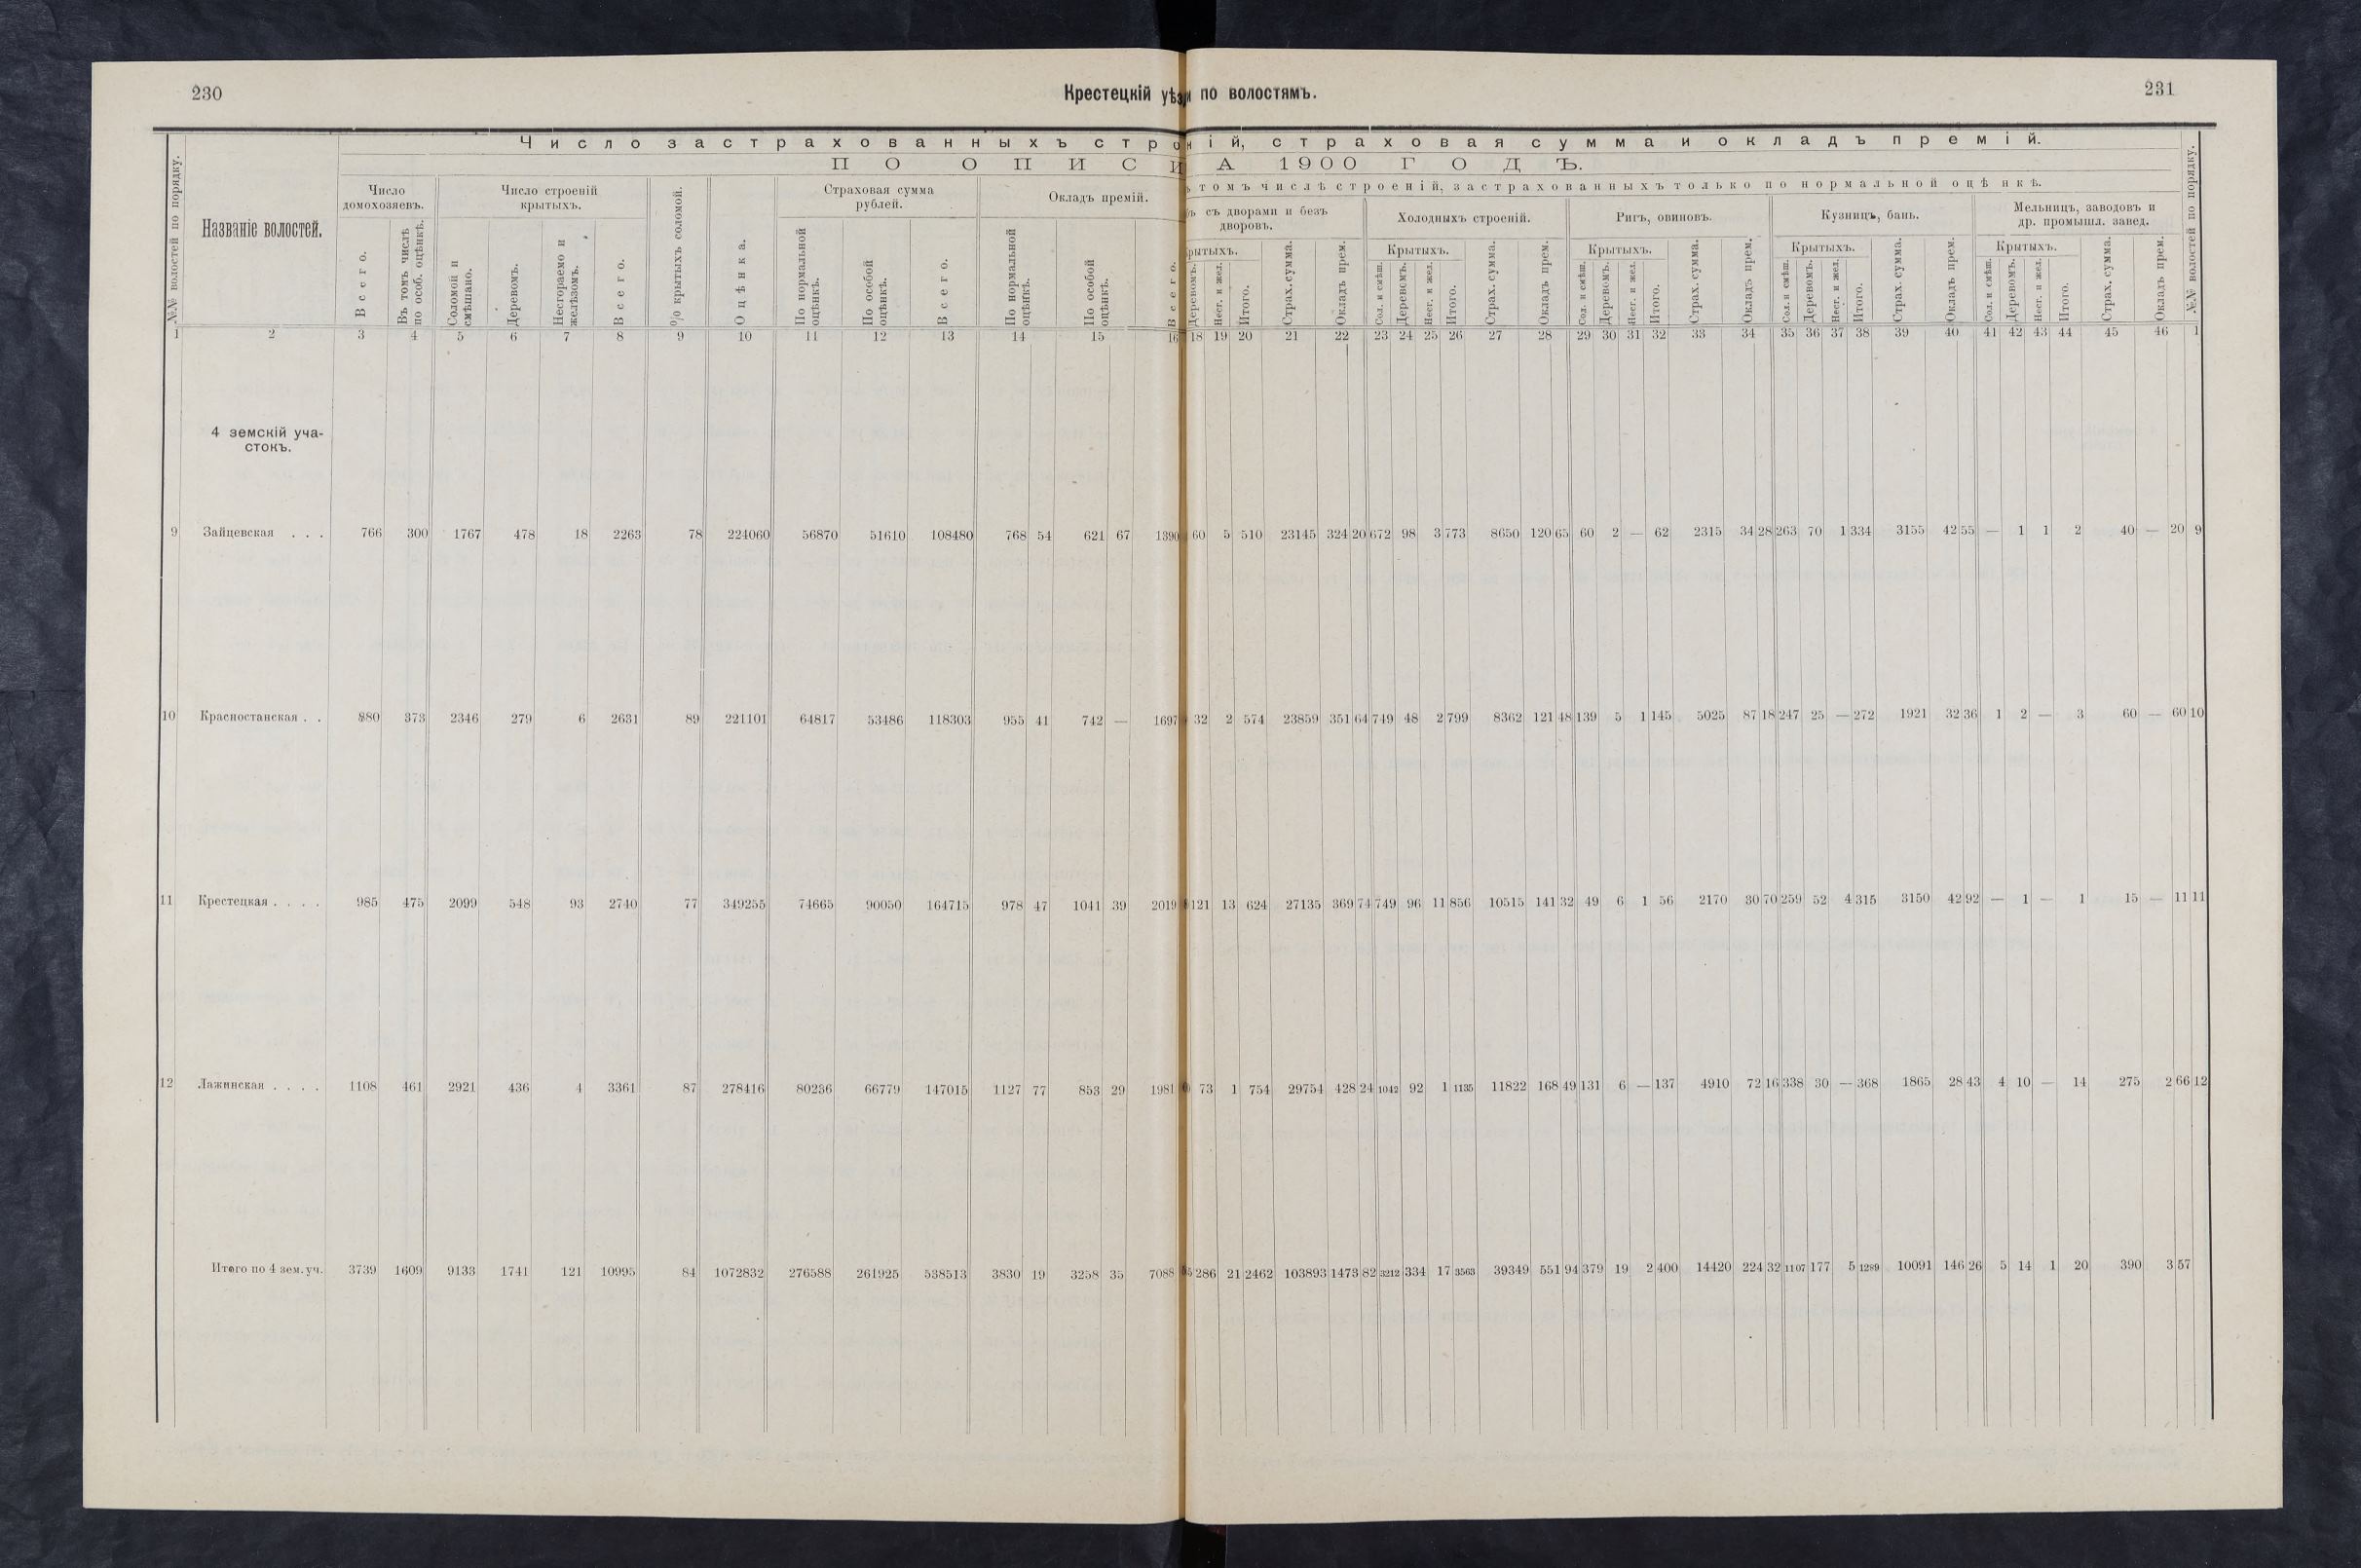 230
Крестецкій уѣз
и по волостямъ.
231
Число застрахованныхъ стро
ній, страховая сумма и окладъ премій.
ПО ОПИСИ
А 1900 ГОДЪ.
томъ числѣ строеній, застрахованныхъ только по нормальной оцѣнкѣ.
№№ волостей по порядку.
Названіе волостей.
Число домохозяевъ.
Всего.
Въ томъ числѣ по особ. оцѣнкѣ.
Число строеній крытыхъ.
Соломой и смѣшано.
Деревомъ.
Несгораемо и желѣзомъ.
Всего.
% крытыхъ соломой.
Оцѣнка.
Страховая сумма рублей.
По нормальной оцѣнкѣ.
По особой оцѣнкѣ.
Всего.
Окладъ премій.
По нормальной оцѣнкѣ.
По особой оцѣнкѣ.
Всего.
съ дворами и безъ дворовъ.
рытыхъ.
Деревомъ.
Несг. и жел.
Итого.
Страх. сумма.
Окладъ прем.
Холодныхъ строеній.
Крытыхъ.
Сол. и смѣш.
Деревомъ.
Несг. и жел.
Итого.
Страх. сумма.
Окладъ прем.
Ригъ, овиновъ.
Крытыхъ.
Сол. и смѣш.
Деревомъ.
Несг. и жел.
Итого.
Страх. сумма.
Окладъ прем.
Кузницъ, бань.
Крытыхъ.
Сол. и смѣш.
Деревомъ.
Несг. и жел.
Итого.
Страх. сумма.
Окладъ прем.
Мельницъ, заводовъ и др. промышл. завед.
Крытыхъ.
Сол. и смѣш.
Деревомъ.
Несг. и жел.
Итого.
Страх. сумма.
Окладъ прем.
№№ волостей по порядку.
1 2 3 4 5 6 7 8 9 10 11 12 13 14 15 16 18 19 20 21 22 23 24 25 26 27 28 29 30 31 32 33 34 35 36 37 38 39 40 41 42 43 44 45 46 1
4 земскій уча-
стокъ.
9 Зайцевская . . . 766 300 1767 478 18 2263 78 224060 56870 51610 108480 768 54 621 67 1390 60 5 510 23145 324 20 672 98 3 773 8650 120 65 60 2 — 62 2315 34 28 263 70 1 334 3155 42 55 — 1 1 2 40 — 20 9
10 Красностанская . . 880 373 2346 279 6 2631 89 221101 64817 53486 118303 955 41 742 — 1697 32 2 574 23859 351 64 749 48 2 799 8362 121 48 139 5 1 145 5025 87 18 247 25 — 272 1921 32 36 1 2 — 3 60 — 60 10
11 Крестецкая . . . . 985 475 2099 548 93 2740 77 349255 74665 90050 164715 978 47 1041 39 2019 121 13 624 27135 369 74 749 96 11 856 10515 141 32 49 6 1 56 2170 30 70 259 52 4 315 3150 42 92 — 1 — 1 15 — 11 11
12 Лажинская . . . . 1108 461 2921 436 4 3361 87 278416 80236 66779 147015 1127 77 853 29 1981 73 1 754 29754 428 24 1042 92 1 1135 11822 168 49 131 6 — 137 4910 72 16 338 30 — 368 1865 28 43 4 10 — 14 275 2 66 12
Итого по 4 зем. уч. 3739 1609 9133 1741 121 10995 84 1072832 276588 261925 538513 3830 19 3258 35 7088 286 21 2462 103893 1473 82 3212 334 17 3563 39349 551 94 379 19 2 400 14420 224 32 1107 177 5 1289 10091 146 26 5 14 1 20 390 3 57